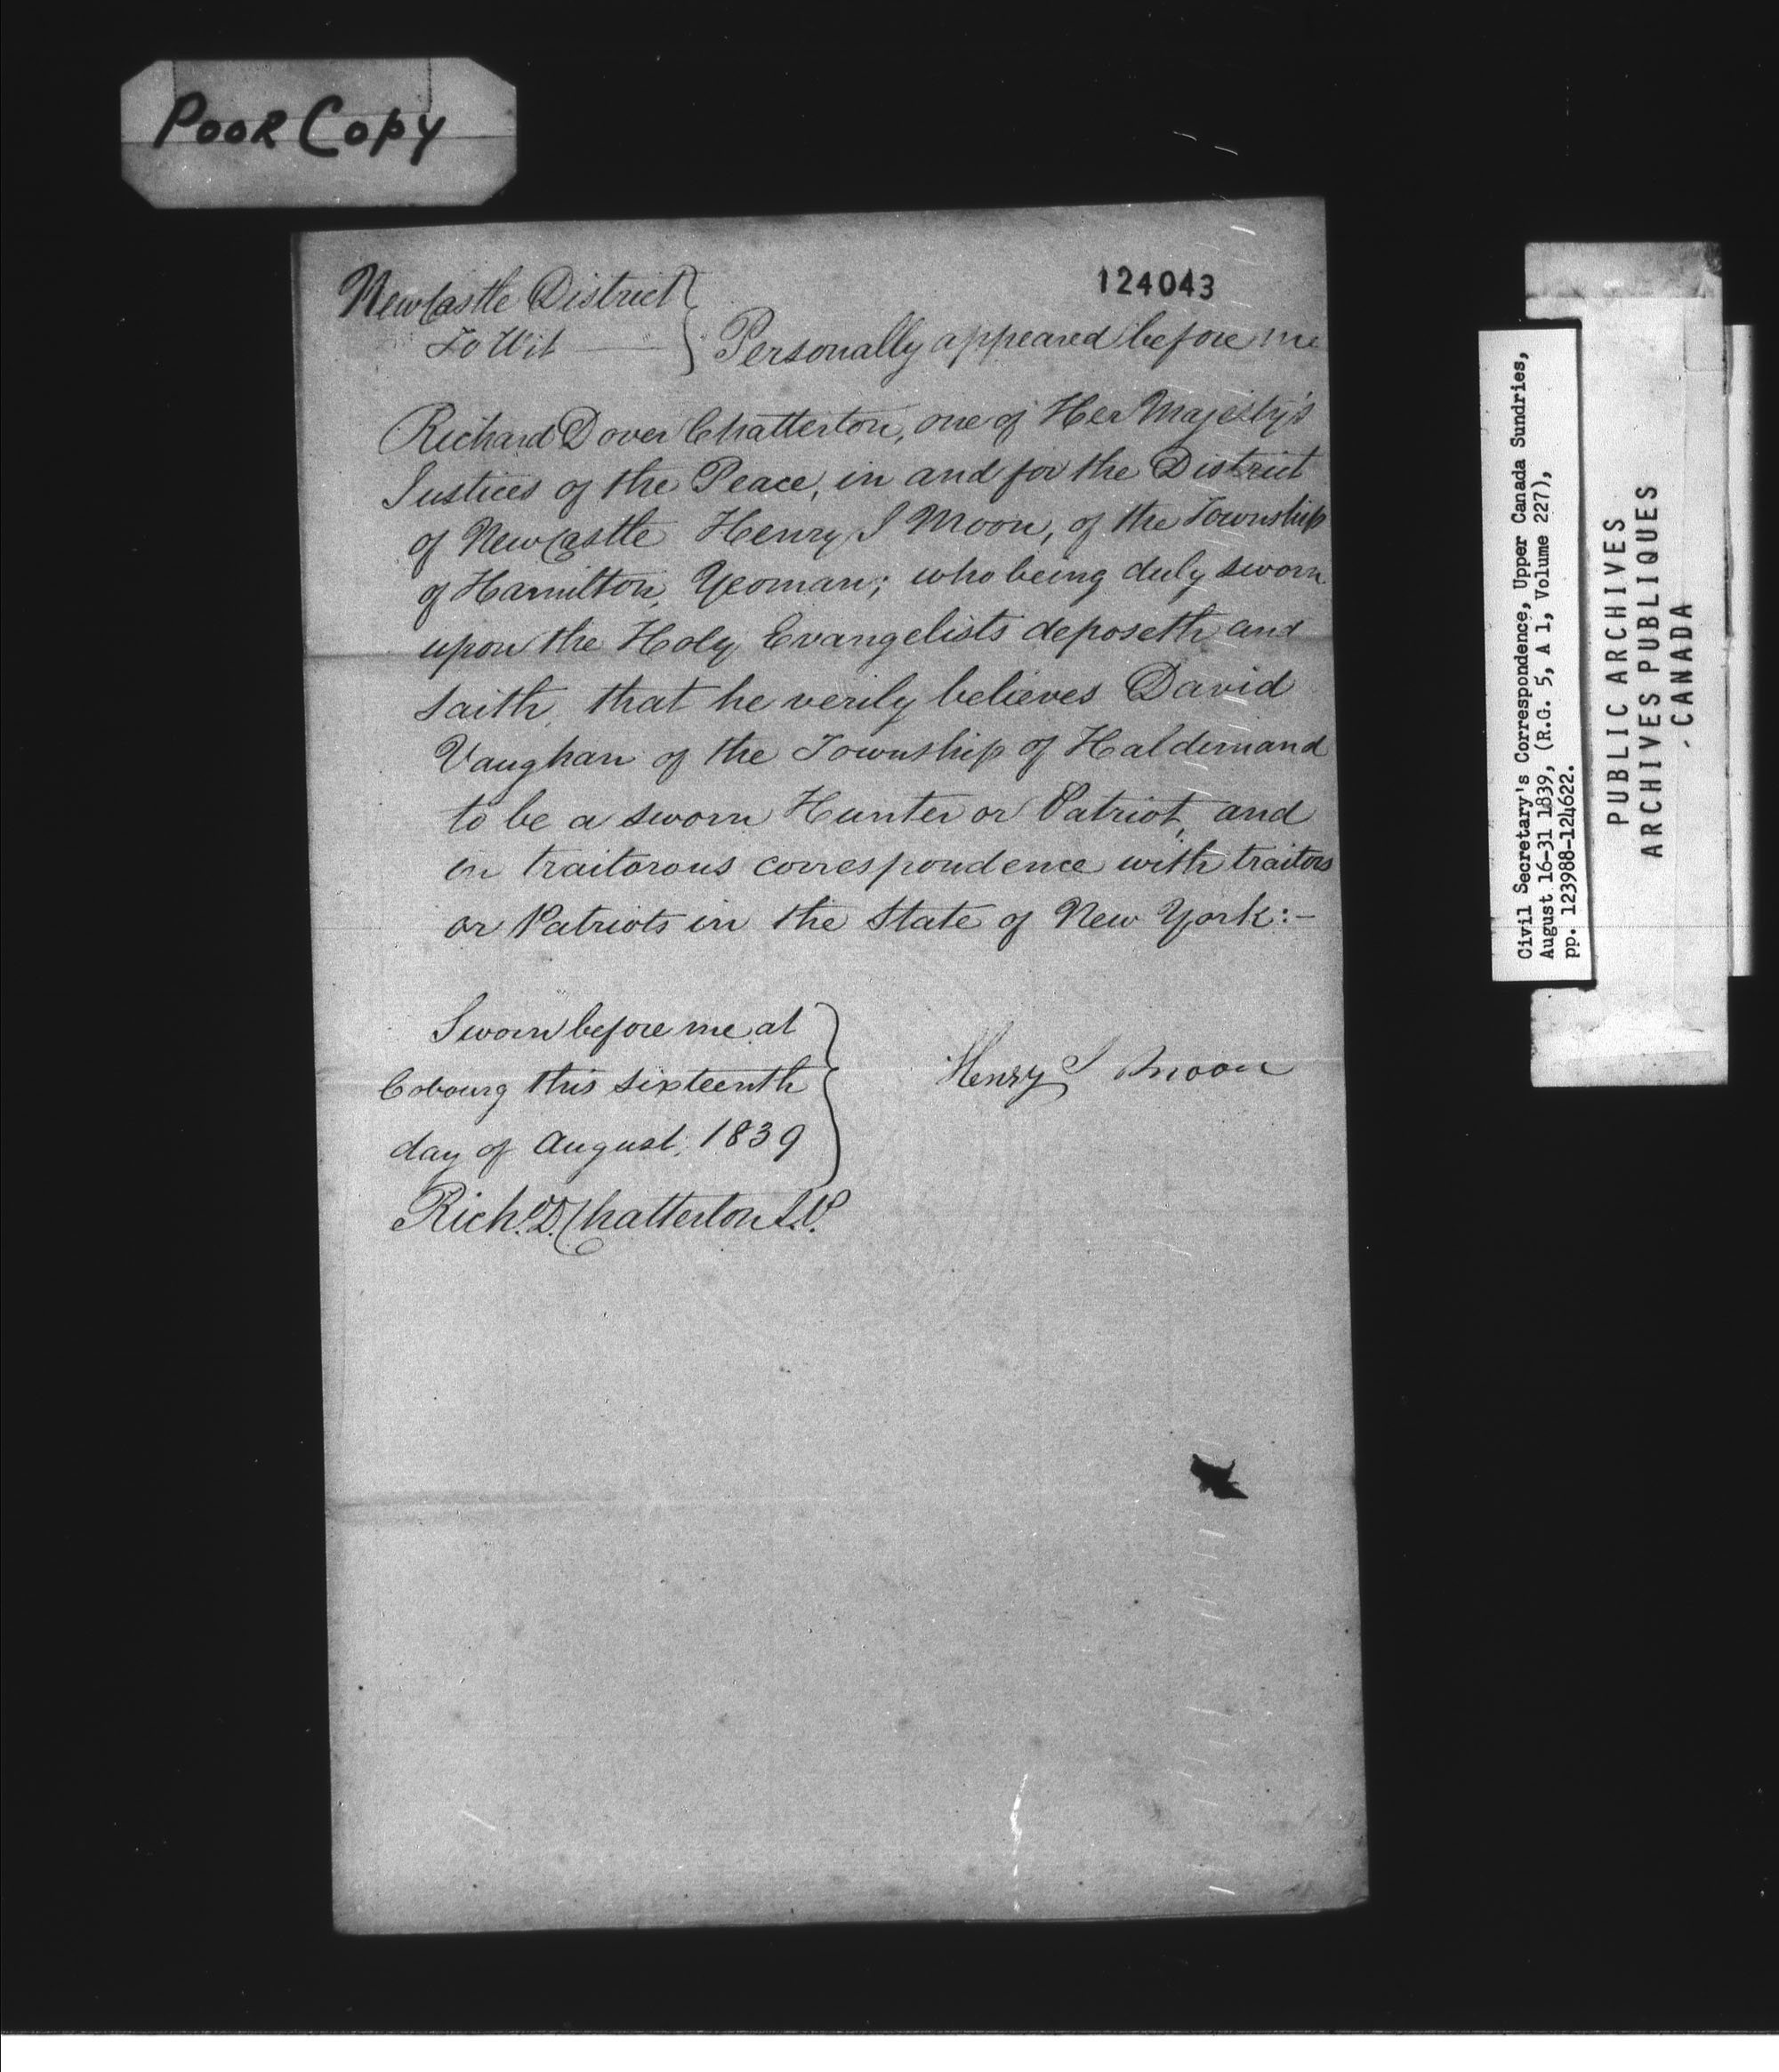 Poor Copy
124043
NewCastle District
To Wit — Personally appeared before me
Richard Dover Chatterton, one of Her Majesty's
Justices of the Peace, in and for the District
of NewCastle Henry S Moon, of the Township
of Hamilton, Yeoman; who being duly sworn
upon the Holy Evangelists deposeth and
saith, that he verily believes David
Vaughan of the Township of Haldimand
to be a sworn Hunter or Patriot, and
in traitorous correspondence with traitors
or Patriots in the State of New York:-
Sworn before me at
Cobourg this sixteenth
day of August, 1839
Henry S Moon
Richd. D. Chatterton J.P.
Civil Secretary's Correspondence, Upper Canada Sundries,
August 16-31 1839, (R.G. 5, A 1, Volume 227),
pp. 123988-124622.
PUBLIC ARCHIVES
ARCHIVES PUBLIQUES
CANADA